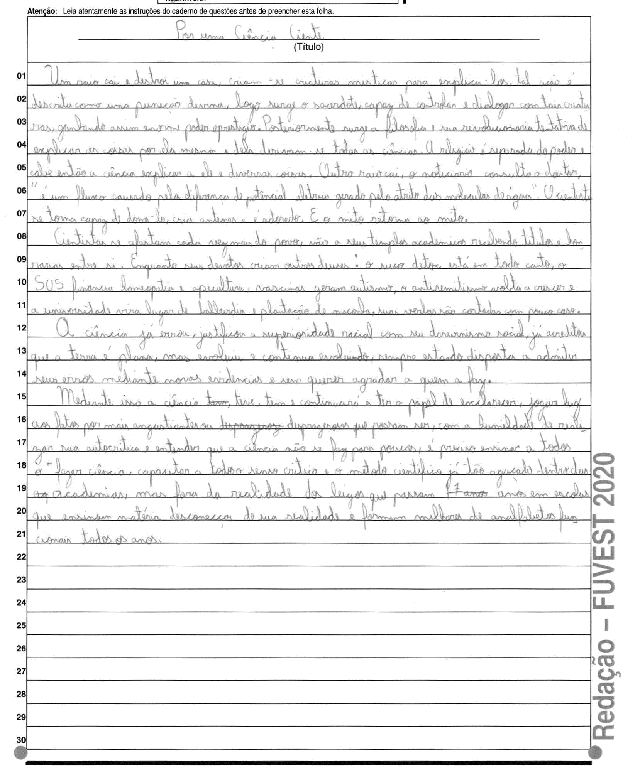 Atenção: Leia atentamente as instruções do caderno de questões antes de preencher esta folha.
Por uma Ciência Ciente
(Título)
01 Um raio cai e destrói uma casa, criam-se criaturas místicas para explicá-los, tal ação é
02 descrita como uma punição divina, logo surge o sacerdote, capaz de controlar e dialogar com tais criatu
03 ras, ganhando assim enorme poder e prestígio. Posteriormente surge a filosofia e sua revolucionária tentativa de
04 explicar as coisas por elas mesmas e dela derivam-se todas as ciências. A religião é separada do poder e
05 cabe então a ciência explicar a ele e diversas coisas. Outro raio cai, o noticiário consulta o doutor,
06 "é um fluxo causado pela diferença de potencial elétrico gerado pelo atrito das moléculas de água". O cientista
07 se torna capaz de domá-lo, cria antenas e é adorado. E o mito retorna ao mito.
08 Cientistas se afastam cada vez mais do povo, vão a seus templos acadêmicos recebendo títulos e hon
09 rarias entre si. Enquanto seus devotos criam outros deuses: o suco detox está em todo canto, o
10 SUS financia homeopatia e apicultura, vacinas geram autismo, o antissemitismo volta a crescer e
11 a universidade vira lugar de balbúrdia e plantação de maconha, suas verbas são cortadas com pouco caso.
12 A ciência já errou, justificou a superioridade racial com seu darwinismo social, já acreditou
13 que a terra é plana, mas evoluiu e continua evoluindo, sempre estando disposta a admitir
14 seus erros mediante novas evidências e sem querer agradar a quem a faz.
15 Mediante isso a ciência teve, tem e continuará a ter o papel de esclarecer, jogar luz
16 aos fatos por mais angustiantes ou desprazerosos que possam ser, com a humildade de reali
17 zar sua autocrítica e entender que a ciência não se faz para poucos, é preciso ensinar a todos
18 o "fazer ciência", capacitar a todos senso crítico e o método científico já tão aguçado dentro das
19 academias, mas fora da realidade dos leigos que passam anos em escolas
20 que ensinam matéria desconexas de sua realidade e formam milhares de analfabetos fun
21 cionais todos os anos.
22
23
24
25
26
27
28
29
30
Redação – FUVEST 2020